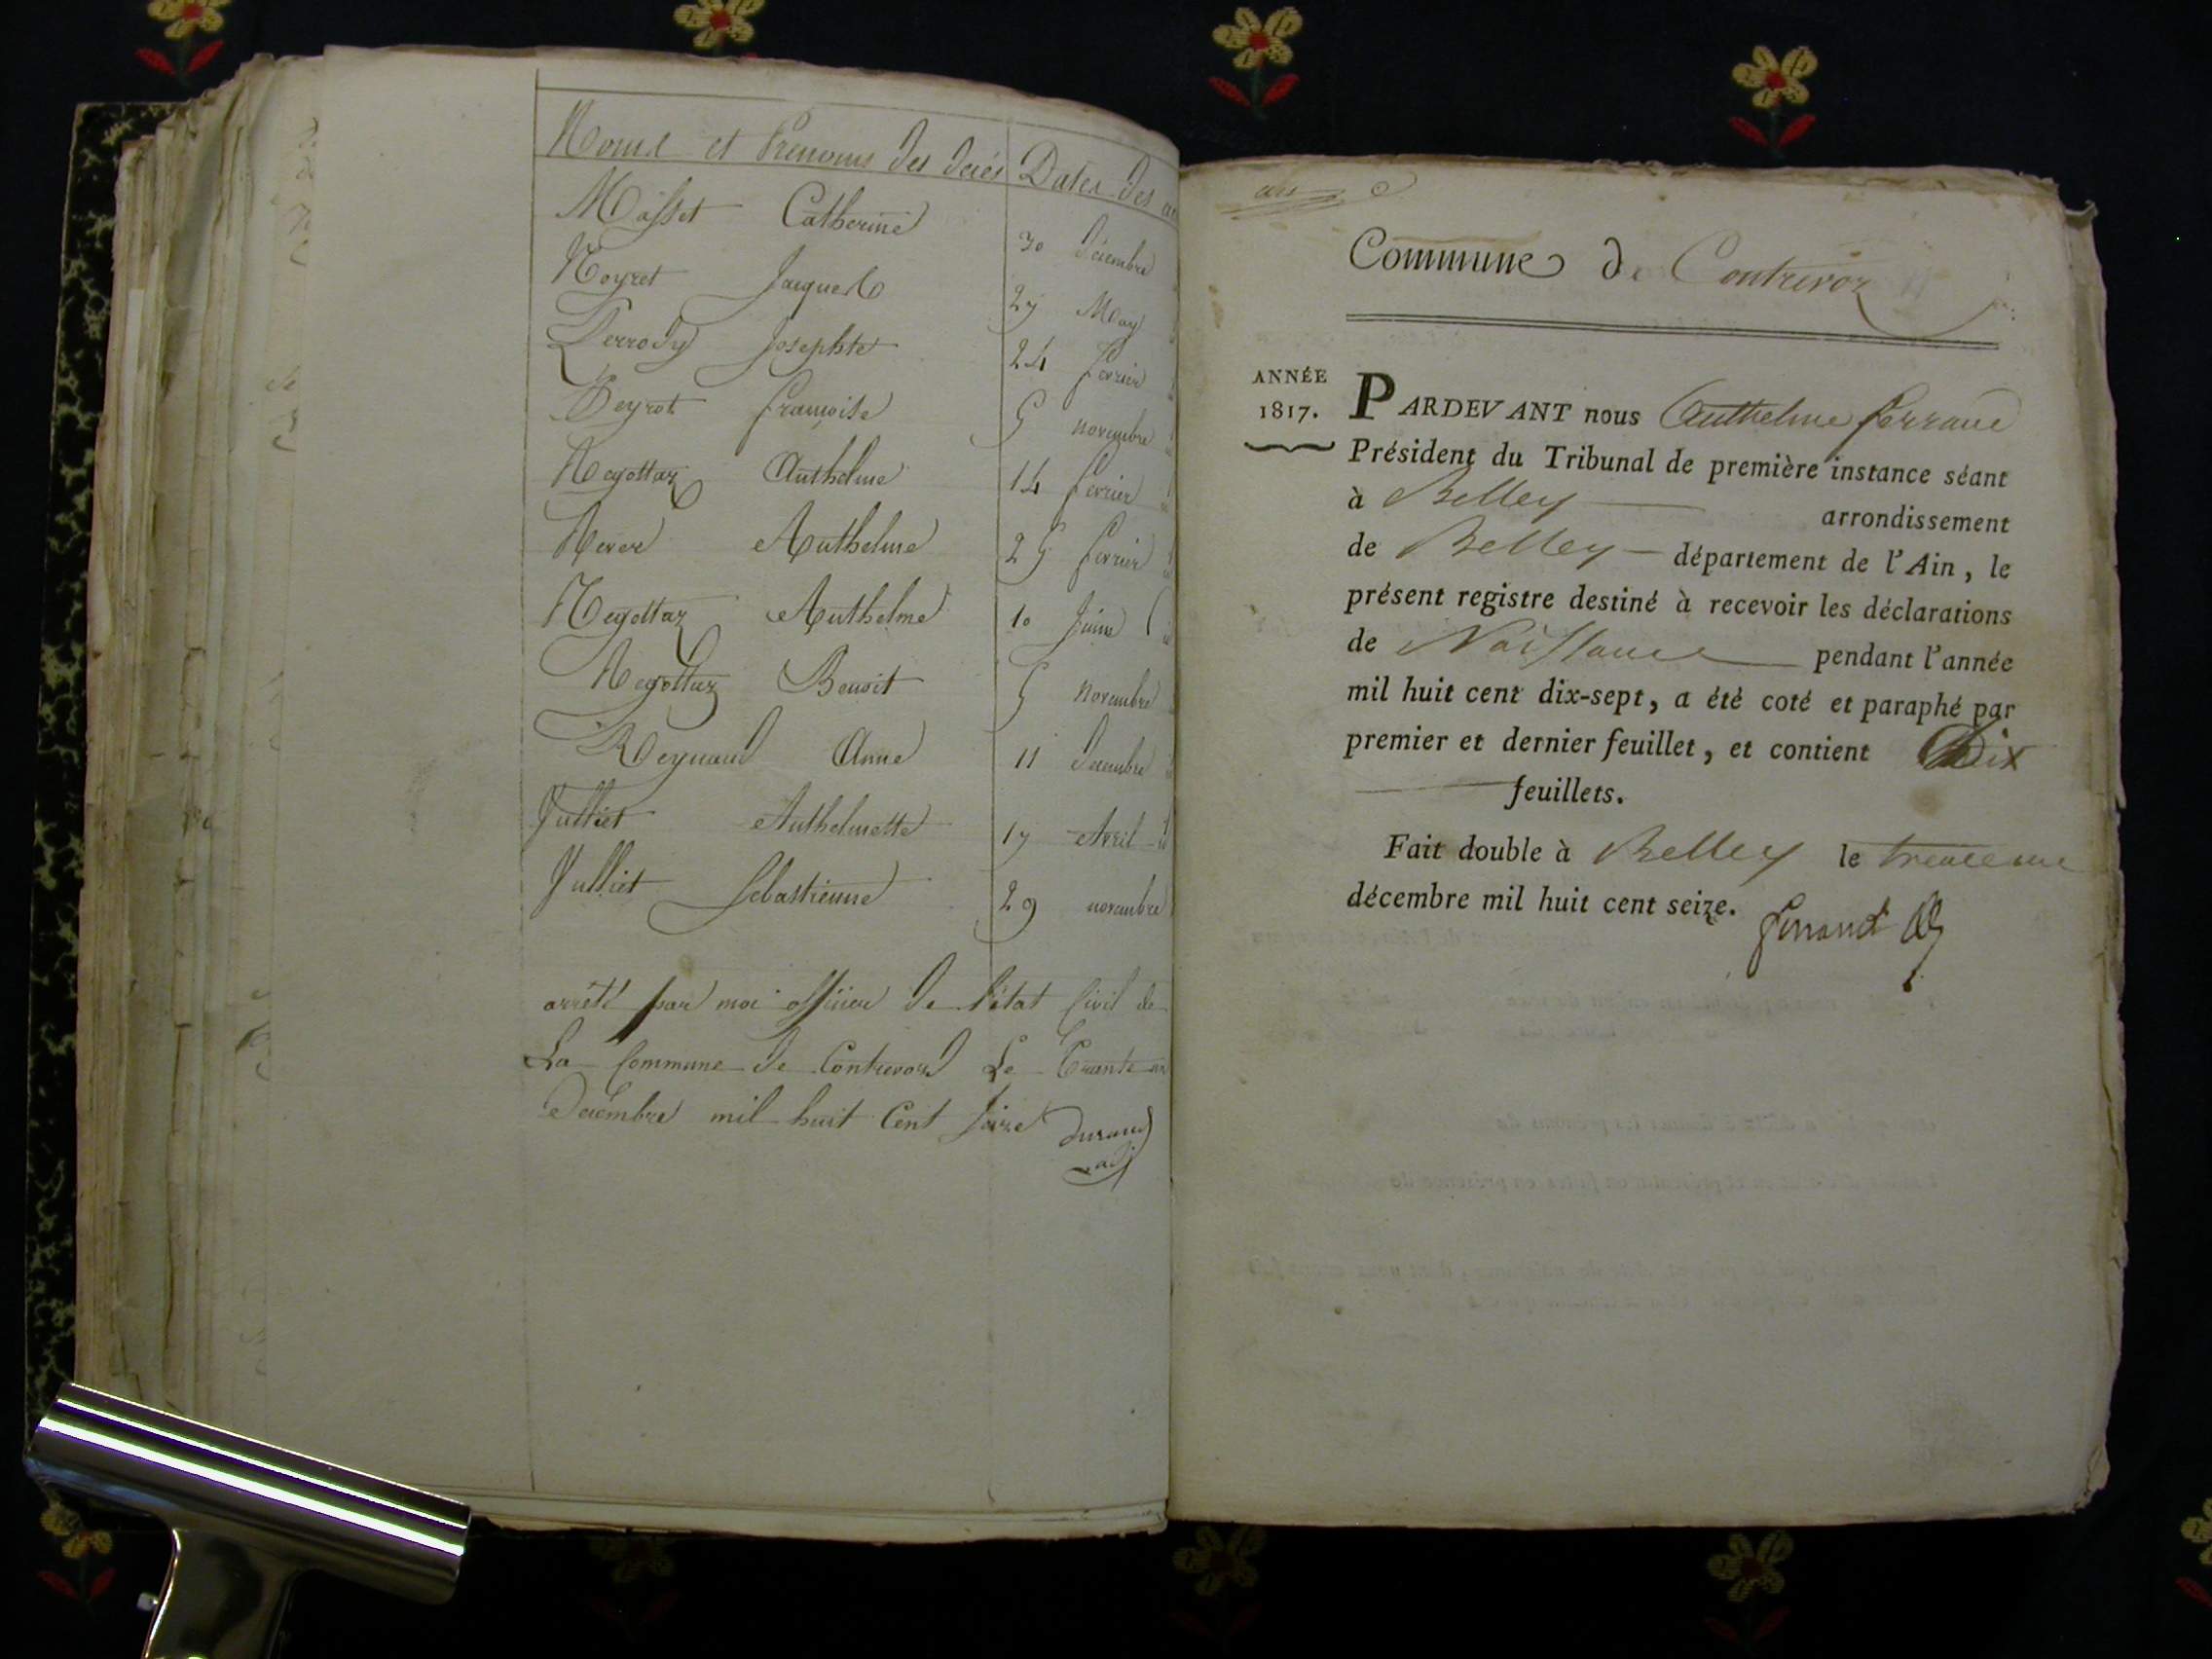 Noms et Prenoms des décés Dates des
Masset Catherine 30 décembre
Noyret Jacques 27 May
Perrody Josephte 24 fevrier
Peyrot francoise 5 novembre
Anthelme 14 fevrier
Anthelme 25 fevrier
Anthelme 10 Juin
Benoit 5 Novembre
Reynaud Anne 11 decembre
Julliet Anthelmette 17 Avril
Julliet Sebastienne 29 novembre
arrêté par moi officier de l'état Civil de
La Commune de Contrevoz Le Trante un
Decembre mil huit Cent Seize durand
adj
Commune de Contrevoz
ANNÉE
1817.
PARDEVANT nous Anthelme ferrand
Président du Tribunal de première instance séant
à Belley arrondissement
de Belley département de l'Ain, le
présent registre destiné à recevoir les déclarations
de Naissance pendant l'année
mil huit cent dix-sept, a été coté et paraphé par
premier et dernier feuillet, et contient Dix
feuillets.
Fait double à Belley le
décembre mil huit cent seize.
ferrand